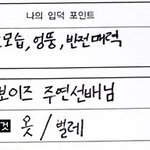 나의 입덕 포인트
모습, 엉뚱, 반전매력
보이즈 주연선배님
것 옷 / 벌레